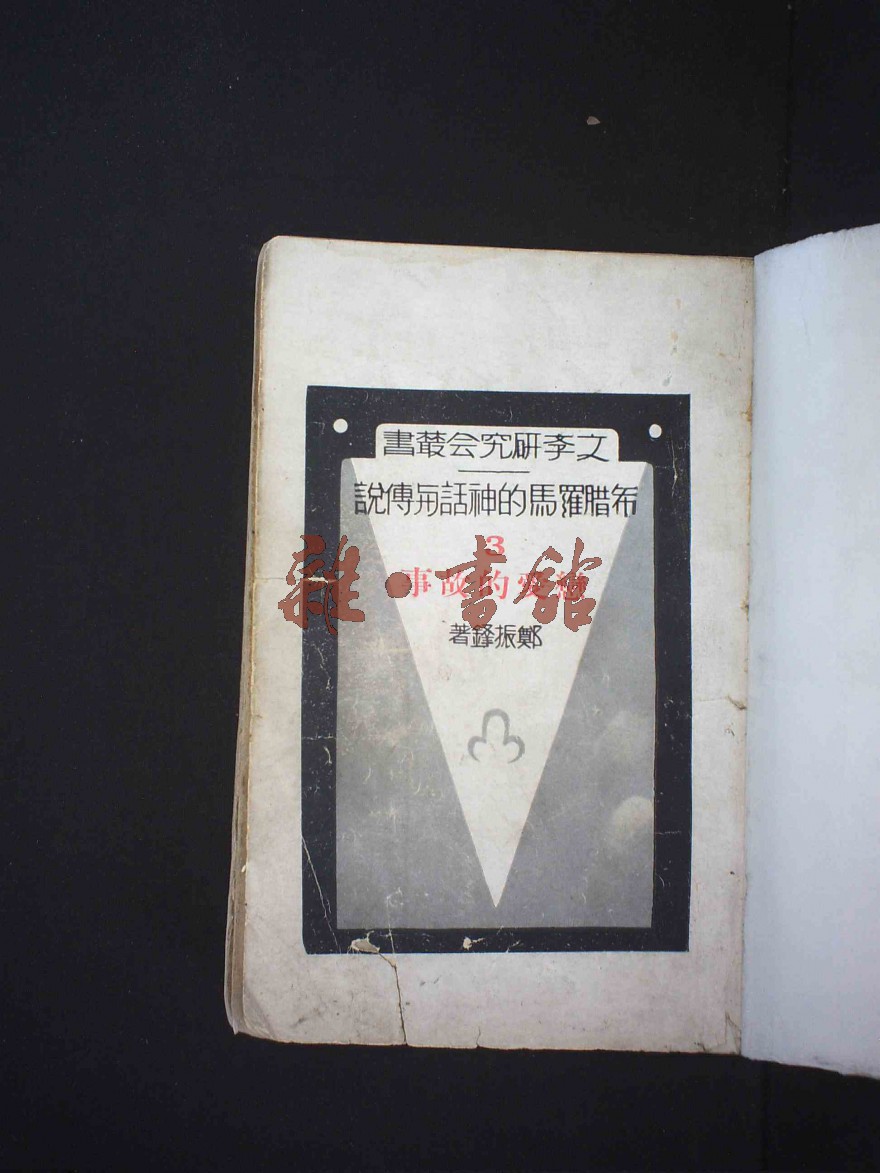 文斈研究会叢書
希腊羅馬的神話与傳說
3
戀愛的故事
鄭振鐸著
雜·書館